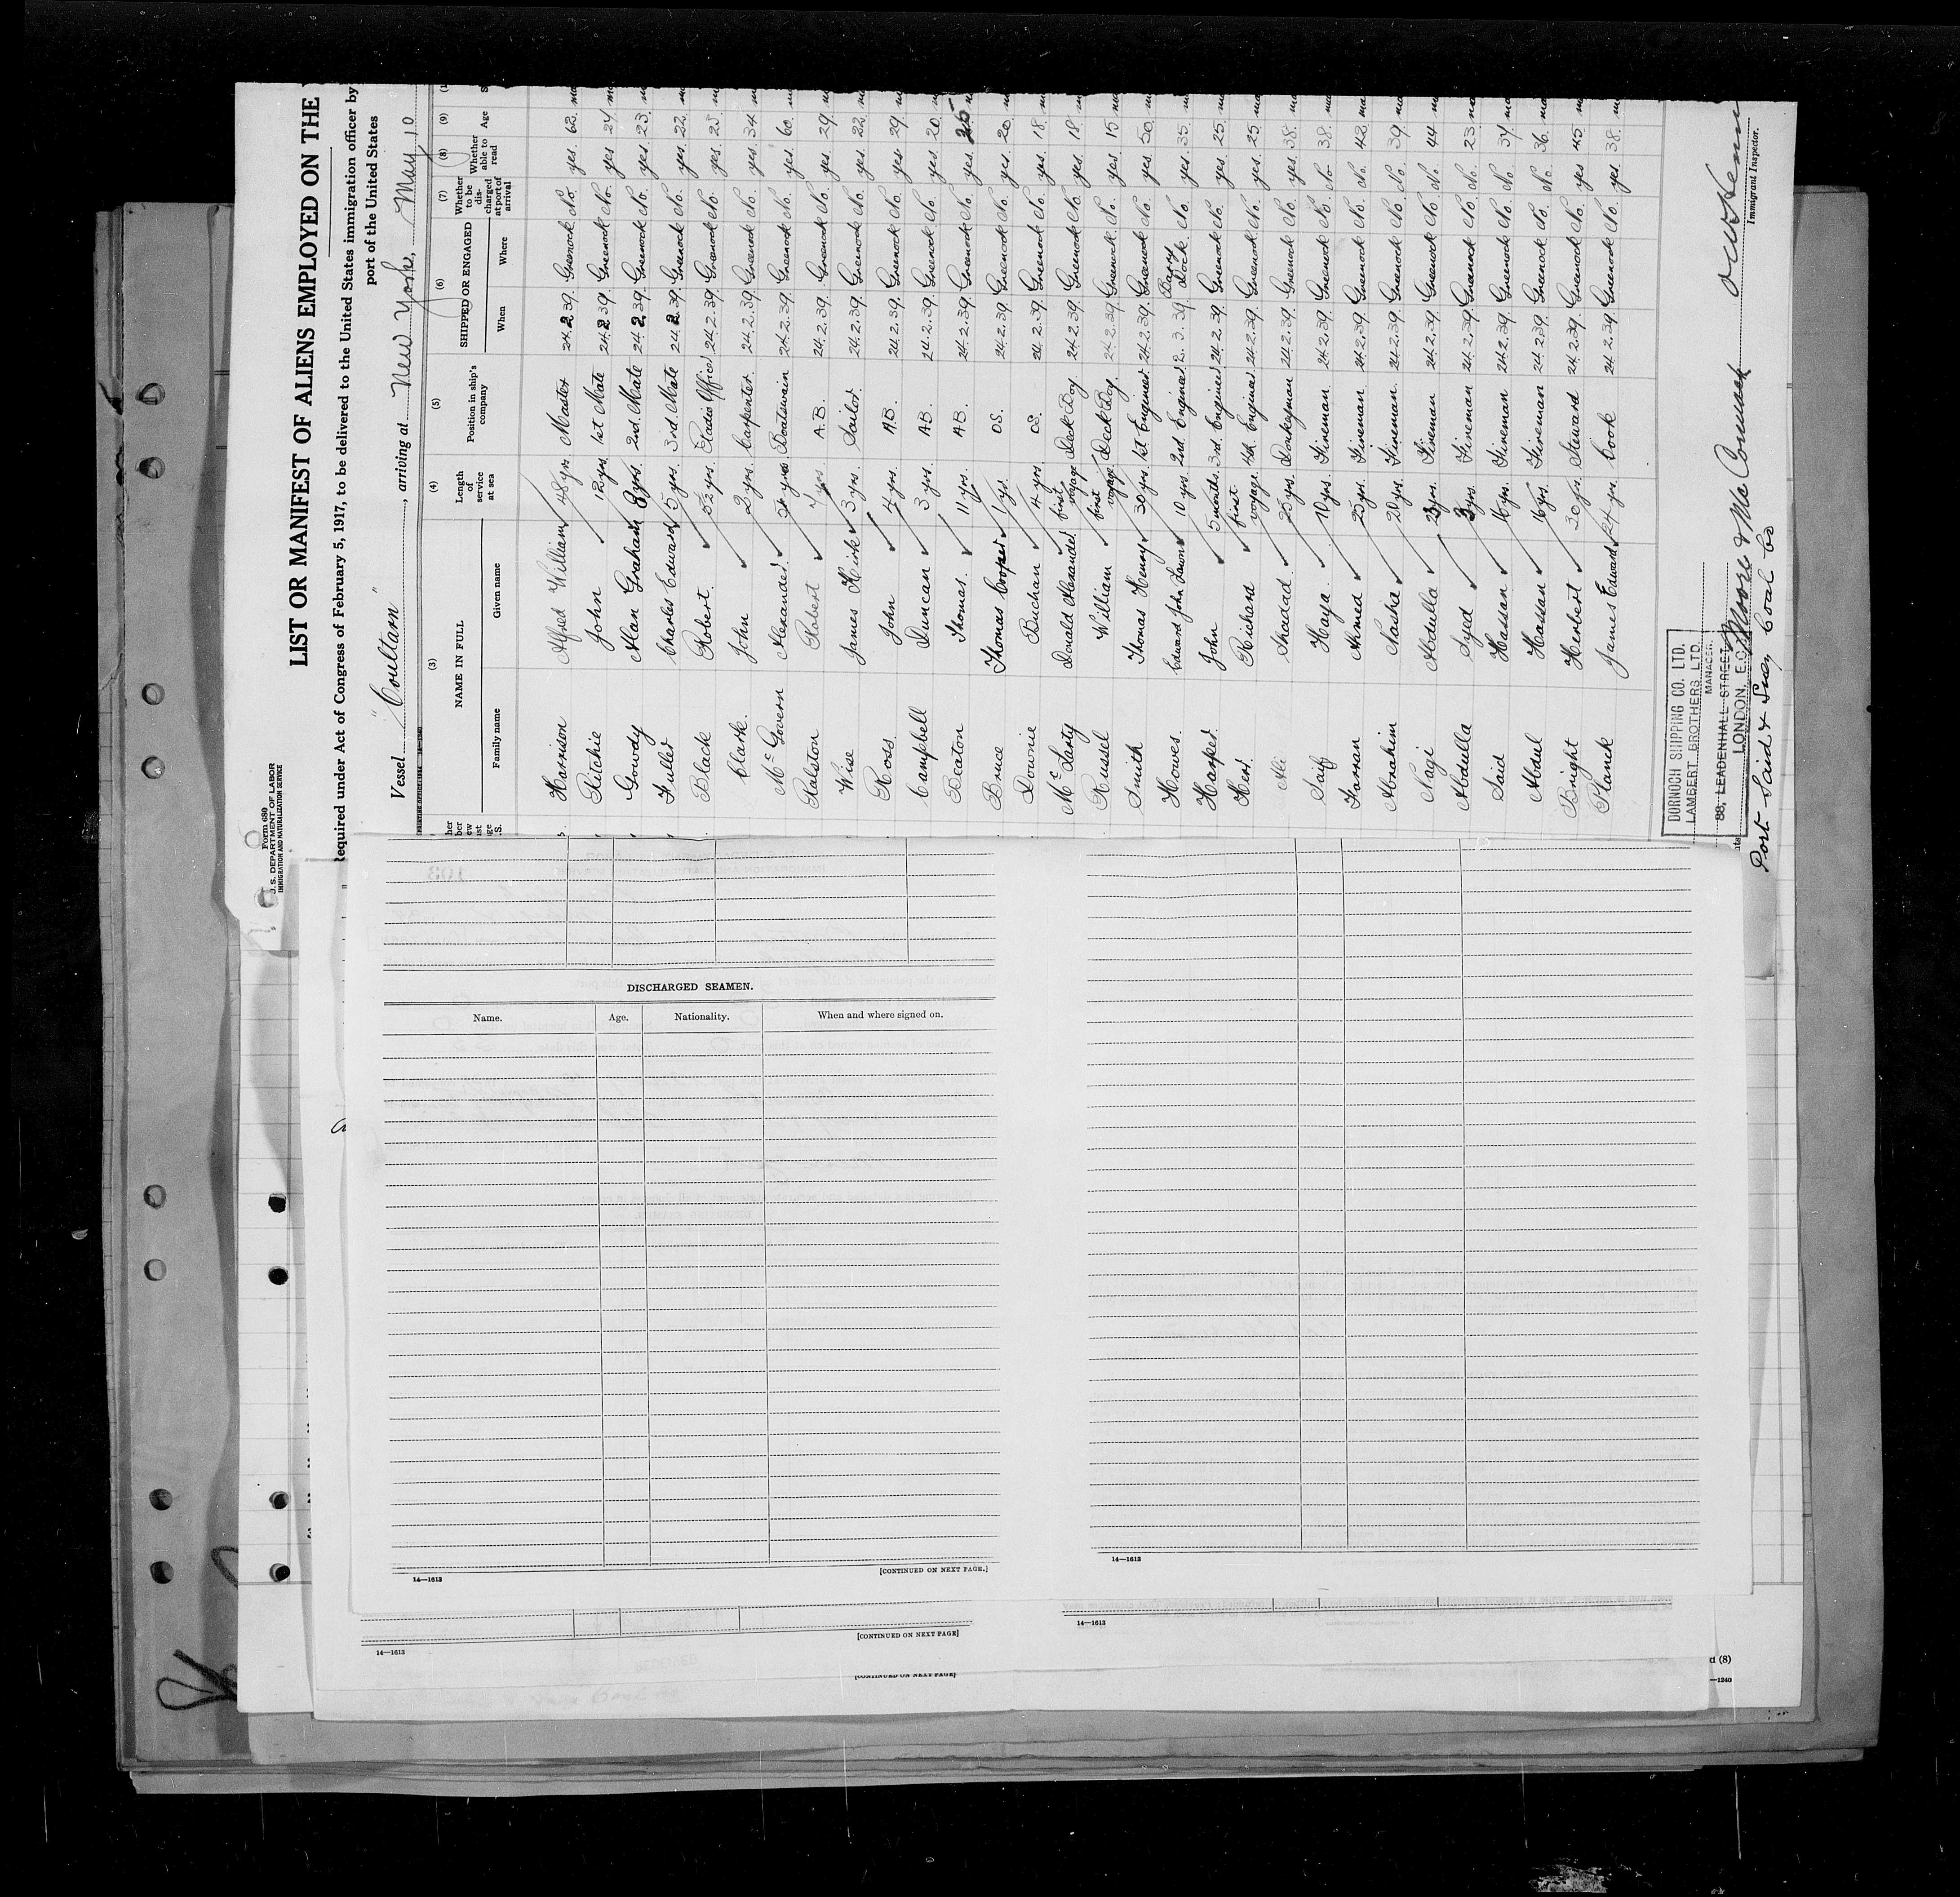 Form 680
U. S. DEPARTMENT OF LABOR
IMMIGRATION AND NATURALIZATION SERVICE
LIST OR MANIFEST OF ALIENS EMPLOYED ON THE
Required under Act of Congress of February 5, 1917, to be delivered to the United States immigration officer by
port of the United States
Vessel "Coultarn", arriving at New York, May 10
(3) (4) (5) (6) (7) (8) (9)
NAME IN FULL Length of service at sea Position in ship's company SHIPPED OR ENGAGED Whether to be discharged at port of arrival Whether able to read Age
Family name Given name When Where
Harrison Alfred William 48 yrs. Master 24.2.39. Greenock No. yes. 62.
Ritchie John 12 yrs. 1st Mate 24.2.39. Greenock No. yes 24
Gowdy Alan Graham 8 yrs. 2nd. Mate 24.2.39. Greenock No. yes. 23.
Fuller Charles Edward 5 yrs. 3rd. Mate 24.2.39. Greenock No. yes. 22.
Black Robert. 5½ yrs. Radio Officer 24.2.39. Greenock No. yes. 25.
Clark. John 2 yrs. Carpenter. 24.2.39. Greenock No. yes. 34.
McGovern Alexander. yrs. Boatswain 24.2.39. Greenock No. yes. 60.
Ralston Robert 7 yrs. A.B. 24.2.39. Greenock No. yes. 29.
Wise James Kirk 3 yrs. Sailor. 24.2.39. Greenock No. yes. 22.
Ross. John 4 yrs. A.B. 24.2.39. Greenock No. yes 29.
Campbell Duncan 3 yrs. A.B. 24.2.39. Greenock No. yes. 20.
Beaton Thomas. 11 yrs. A.B. 24.2.39. Greenock No. yes.
Bruce Thomas Cooper 1 yr. O.S. 24.2.39 Greenock No. yes. 20.
Downie Buchan 4 yrs. O.S. 24.2.39. Greenock No. yes. 18.
McLarty Donald Alexander first voyage Deck Boy. 24.2.39. Greenock No. yes. 18.
Russel William first voyage Deck Boy. 24.2.39. Greenock No. yes. 15
Smith Thomas Henry 30 yrs. 1st. Engineer. 24.2.39. Greenock No. yes. 50.
Howes. Edward John 10 yrs. 2nd. Engineer 2.3.39. Barry Dock. No. yes. 35.
Harker. John 5 months. 3rd. Engineer 24.2.39. Greenock No. yes. 25.
Kerr. Richard first voyage. 4th. Engineer 24.2.39. Greenock No. yes. 25.
Ali Shadad. 25 yrs. Donkeyman 24.2.39. Greenock No. yes. 38.
Saif Haya. 10 yrs. Fireman. 24.2.39. Greenock No. No. 38.
Farran Ahmed 25 yrs. Fireman. 24.2.39. Greenock No. No. 42.
Abrahim Pasha 20 yrs. Fireman. 24.2.39. Greenock No. No. 39.
Nagi Abdulla yrs. Fireman 24.2.39. Greenock No. No. 44
Abdulla Syed yrs. Fireman 24.2.39. Greenock No. No. 23
Said Hassan 16 yrs. Fireman 24.2.39. Greenock No. No. 37
Abdul Hassan 16 yrs. Fireman 24.2.39. Greenock No. No. 36.
Bright Herbert 30 yrs. Steward 24.2.39. Greenock No. yes 45.
Planck James Edward 24 yrs. Cook 24.2.39. Greenock No. yes. 38.
DORNOCH SHIPPING CO. LTD.
LAMBERT BROTHERS LTD.
MANAGER.
88, LEADENHALL STREET
LONDON, E.C.
Moore & McCormack
Port Said & Suez Coal Co
Immigrant Inspector.
DISCHARGED SEAMEN.
Name. Age. Nationality. When and where signed on.
14—1613
[CONTINUED ON NEXT PAGE.]
14—1613
14—1613
[CONTINUED ON NEXT PAGE]
14—1613
[CONTINUED ON NEXT PAGE]
d (8)
—1240